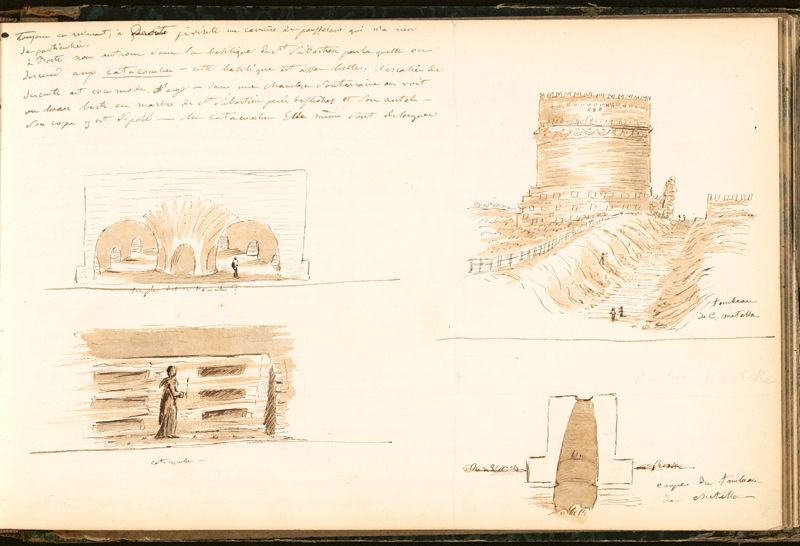 Toujours en revenant, à Droite je visite une carrière de pouzzolane qui n'a rien
de particulier.
à Droite nous entrons dans la basilique de St Sébastien par laquelle on
descend aux catacombes — cette basilique est assez belle; l'escalier de
descente est commode, large — dans une chambre souterraine on voit
un beau buste en marbre de St Sébastien percé et son autel —
Son corps y est déposé — les catacombes Elles même sont de longues
catacombe —
tombeau
de C. Metella
coupe du tombeau
de Metella —